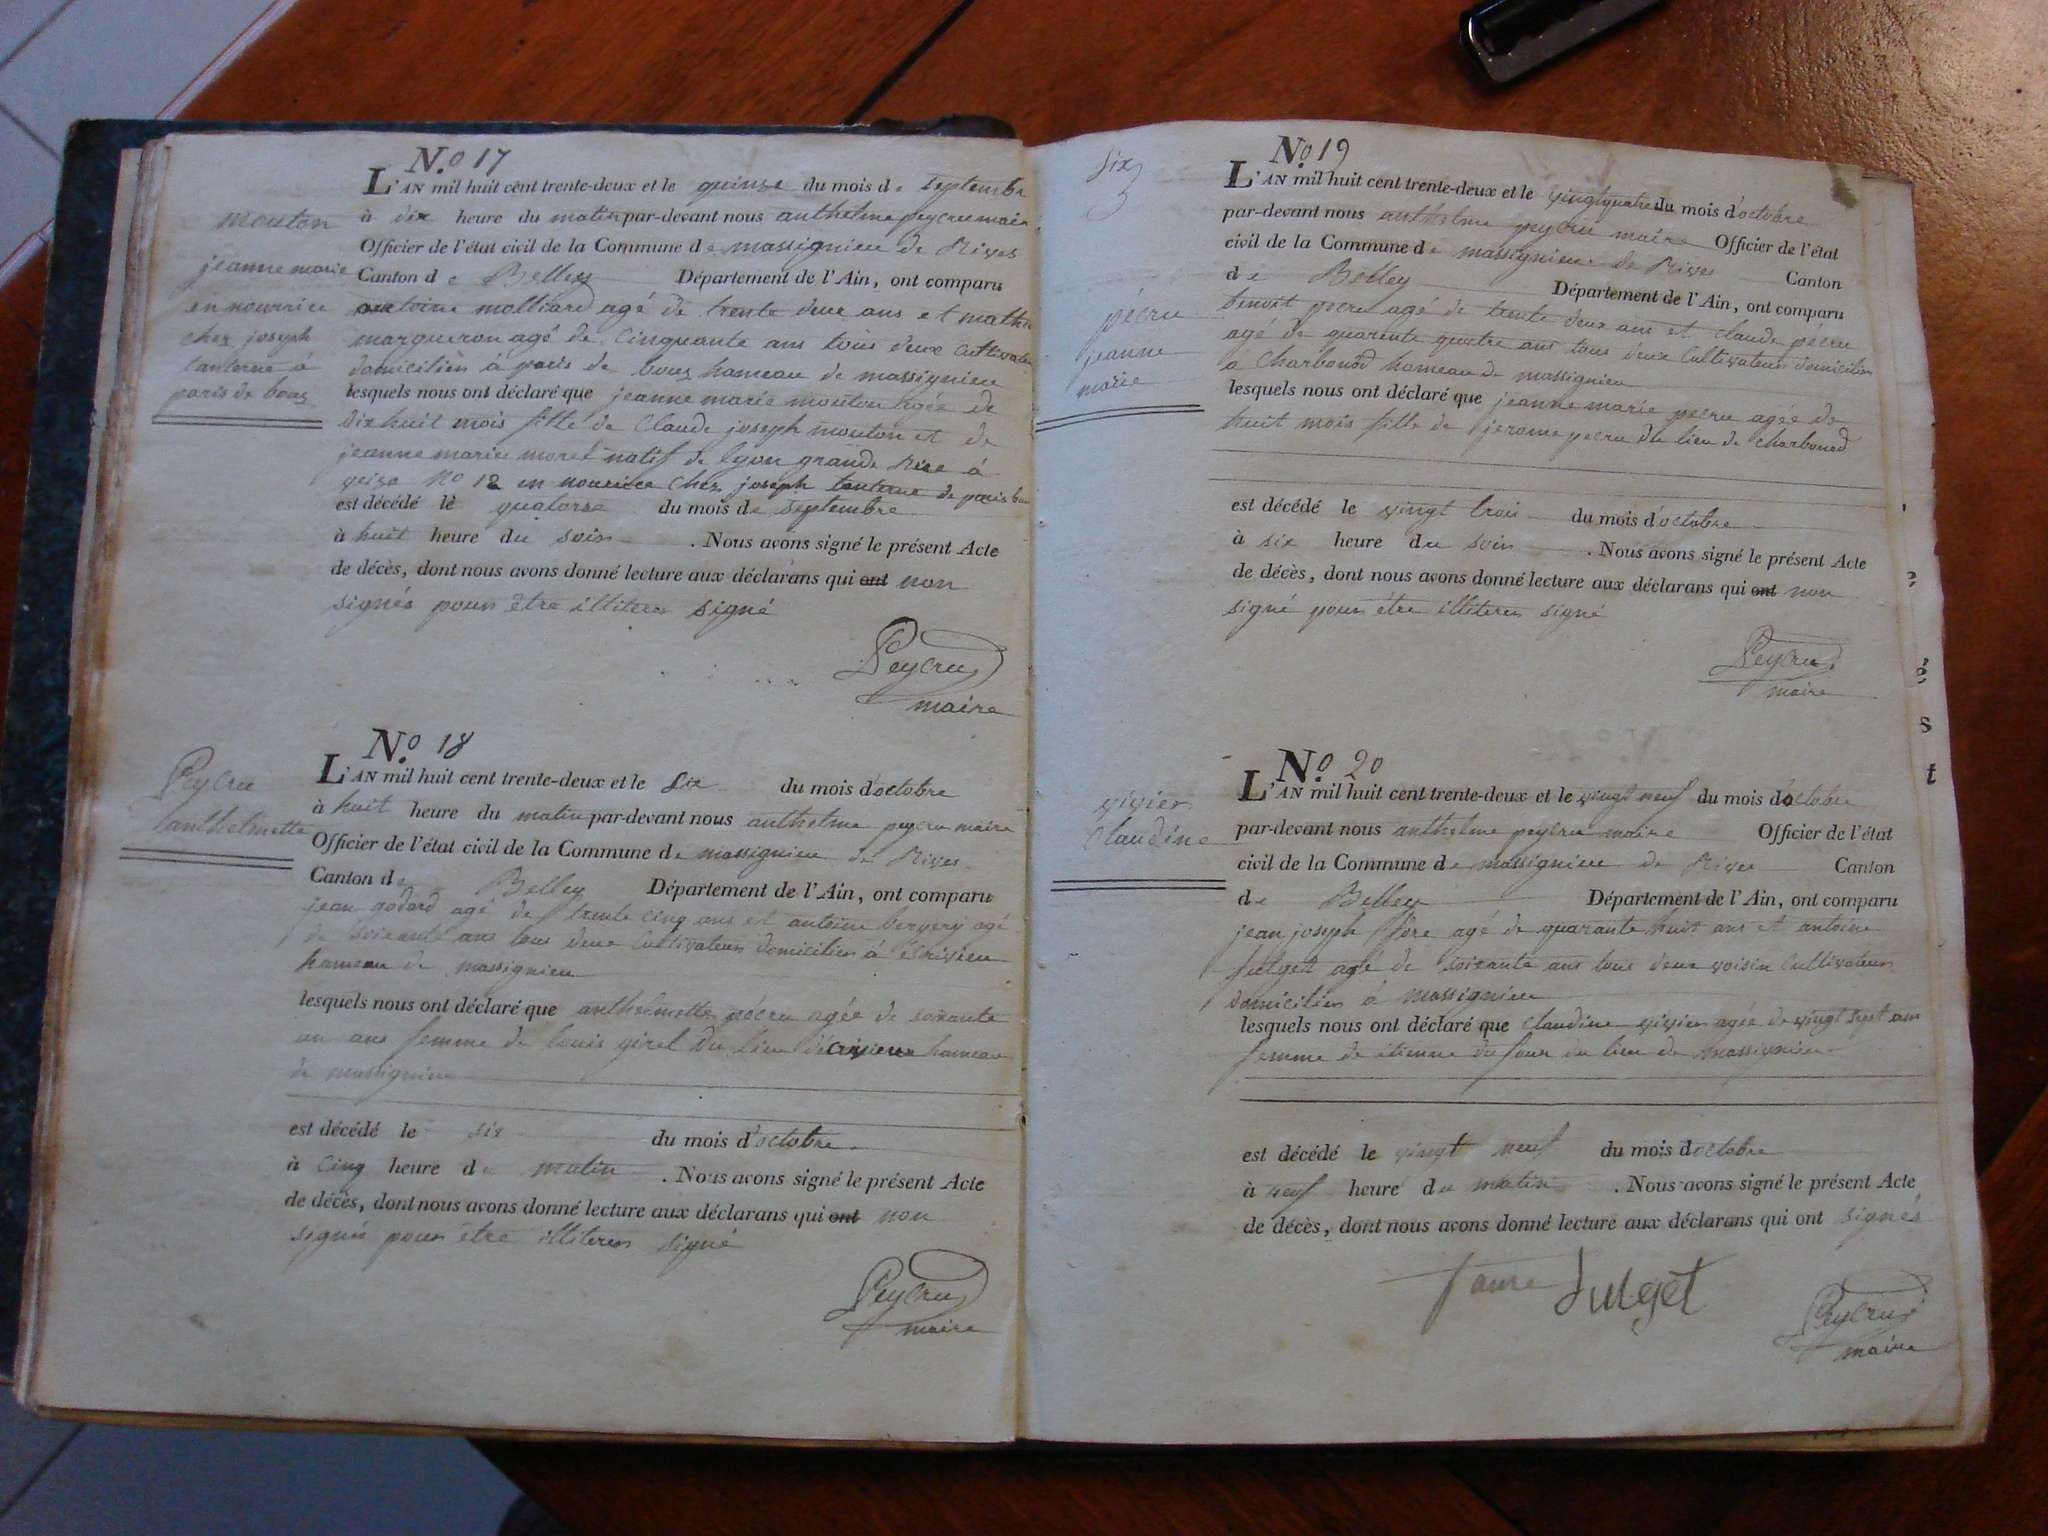 N.o 17
L'AN mil huit cent trente-deux et le quinze du mois de septembre
à dix heure du matin par-devant nous anthelme peycru maire
Officier de l'état civil de la Commune de massignieu de Rives
Canton de Belley Département de l'Ain, ont comparu
antoine molliard agé de trente deux ans et mathie
margueron agé de cinquante ans tous deux Cultivateu
domiciliés à paris de bouz hameau de massignieu
lesquels nous ont déclaré que jeanne marie mouton agée de
dix huit mois fille de Claude joseph mouton et de
jeanne marie moret natif de lyon grande Rue à
No 12 en nourrice chez joseph tanterne de paris bou
est décédé le quatorze du mois de septembre
à huit heure du soir . Nous avons signé le présent Acte
de décès, dont nous avons donné lecture aux déclarans qui ont non
signés pour être illiteres signé
Peycru
maire
mouton
jeanne marie
en nourrice
chez joseph
tanterne à
paris de bouz
N.o 18
L'AN mil huit cent trente-deux et le Six du mois d'octobre
à huit heure du matin par-devant nous anthelme peycru maire
Officier de l'état civil de la Commune de massignieu de Rives
Canton de Belley Département de l'Ain, ont comparu
jean godard agé de trente cinq ans et antoine bergery agé
de soixante ans tous deux Cultivateurs domiciliés à écrivieu
hameau de massignieu
lesquels nous ont déclaré que anthelmette pécru agée de soixante
un ans femme de louis girel du lieu décrivieux hameau
de massignieu
est décédé le six du mois d'octobre
à cinq heure de matin . Nous avons signé le présent Acte
de décès, dont nous avons donné lecture aux déclarans qui ont non
signés pour être illiteres signé
Peycru
maire
Peycru
anthelmette
six
N.o 19
L'AN mil huit cent trente-deux et le vingtquatre du mois d'octobre
par-devant nous anthelme peycru maire Officier de l'état
civil de la Commune de massignieu de Rives Canton
de Belley Département de l'Ain, ont comparu
benoit pecru agé de trente deux ans et claude pécru
agé de quarente quatre ans tous deux Cultivateurs domiciliés
à Charbonod hameau de massignieu
lesquels nous ont déclaré que jeanne marie pecru agée de
huit mois fille de jerome pecru du lieu de charbonod
est décédé le vingt trois du mois d'octobre
à six heure du soir . Nous avons signé le présent Acte
de décès, dont nous avons donné lecture aux déclarans qui ont non
signé pour être illiteres signé
Peycru
maire
pécru
jeanne
marie
N.o 20
L'AN mil huit cent trente-deux et le vingt neuf du mois d'octobre
par-devant nous anthelme peycru maire Officier de l'état
civil de la Commune de massignieu de Rives Canton
de Belley Département de l'Ain, ont comparu
jean joseph fore agé de quarante huit ans et antoine
fulget agé de soixante ans tous deux voisin Cultivateurs
domiciliés à massignieu
lesquels nous ont déclaré que claudine vivier agée de vingt sept ans
femme de etienne du four du lieu de massignieu
est décédé le vingt neuf du mois d'octobre
à neuf heure du matin . Nous avons signé le présent Acte
de décès, dont nous avons donné lecture aux déclarans qui ont signés
faure fulget
Peycru
maire
vivier
Claudine